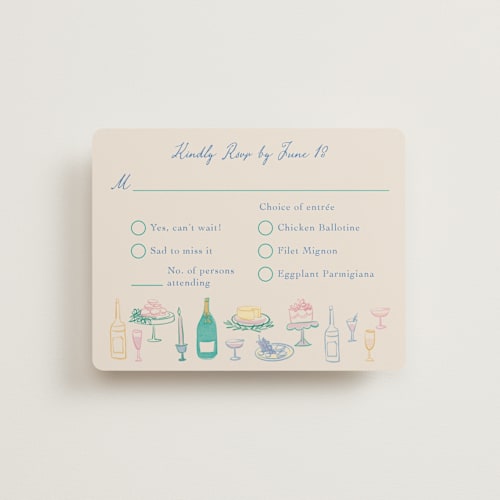 Kindly Rsvp by June 18
M
Choice of entrée
Yes, can't wait!
Chicken Ballotine
Sad to miss it
Filet Mignon
No. of persons
attending
Eggplant Parmigiana